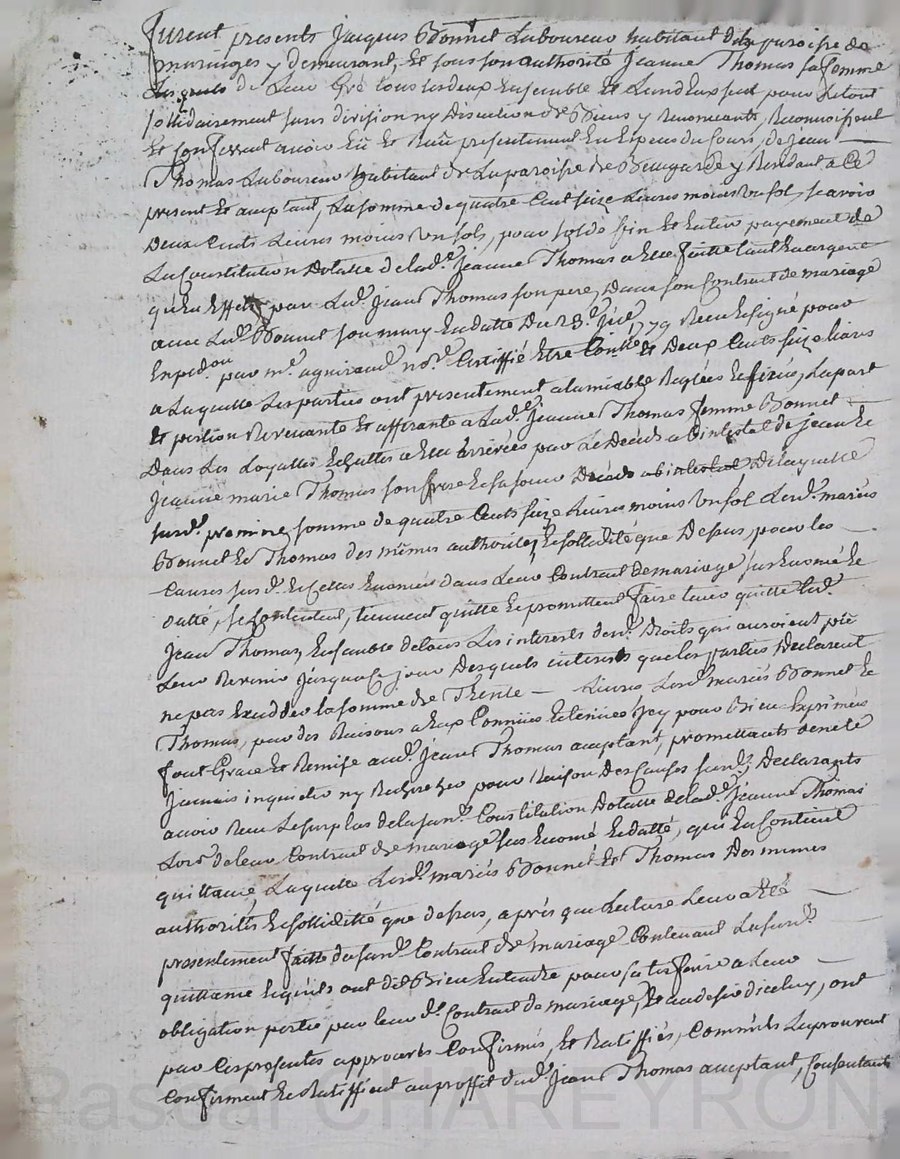 furent presents Jacques Bonnet Laboureur habitant de la paroisse de
maringes y demeurant, Et sous son authorité Jeanne Thomas sa femme
Lesquels de Leur Gré tous Les deux Ensemble Et L'un d'Eux seul pour Le tout
sollidairement sans division ny Discution de Biens y Renonceants, Reconnoissent
Et Confessent avoir Eü Et Reçu presentement En Especes du Cours, de jean
Thomas Laboureur habitant de La paroisse de Bellegarde y Residant a Ce
present Et acceptant, La somme de quatre Cent seize Livres moins un sol, sçavoir
Deux Cents Livres moins un sols, pour solde fin Et Entier payement de
La Constitution Dotalle de lad.e Jeanne Thomas a Elle faitte tant En argent
qu'En Effets par Led. Jean Thomas son pere, Dans son Contrat de mariage
avec Led. Bonnet son mary En datte Du 23.e
Expedon par me. nore. Certiffié Etre Conllé 1779 Et Deux Cents seize Livres
a Laquelle Les parties ont presentement a lamiable Reglées Et fixées, La part
Et portion Revenante Et afférante a Lad.e Jeanne Thomas femme Bonnet
Dans Les Loyalles Echuttes a Elle arrivées par Le Décés abintestat de jean Et
Jeanne marie Thomas son frere Et sa soeur Décédés abintestat De laquelle
susd.e premiere somme de quatre Cents seize Livres moins un sol Lesd. mariés
Bonnet Et Thomas des mêmes authorités, Et sollidité que Dessus, pour les
Causes susd. Et Celles Enoncées dans Leur Contrat de mariage sus Enoncé Et
datté, se Contentent, tiennent quitte Et promettent faire tenir quitte led.
Jean Thomas, Ensemble de tous Les interests desd. Droits qui auroient pû
Leur Revenir jusqu'a Ce jour Desquels interests que les parties Declarent
ne pas Exceder la somme de Trente — Livres Lesd. mariés Bonnet Et
Thomas, par des Raisons a Eux Connües Et tenües jcy pour Bien Exprimées
font Grace Et Remise aud. Jean Thomas acceptant, promettants de ne le
Jamais inquieter ny Rechercher pour Raison Des Causes susd.; Declarants
avoir Reçu Le surplus de la susd. Constitution Dotalle de lad.e Jeanne Thomas
Lors de leur Contrat de mariage sus Enoncé Et datté, qui En Contient
quittance Laquelle Lesd. mariés Bonnet Et Thomas Des mêmes
authorités Et sollidité que dessus, après que Lecture Leur a Eté
presentement faitte du susd. Contrat de mariage Contenant La susd.
quittance Et qu'ils ont dit Bien Entendre pour satisfaire a Leur
obligation portée par leur d. Contrat de mariage, Et au desir d'icelluy, ont
par Ces presentes approuvés Confirmés, Et Ratiffiés, Comm'ils Laprouvent
Confirment Et Ratiffient au proffit dud. Jean Thomas acceptant, Consentants
Pascal CHAREYRON